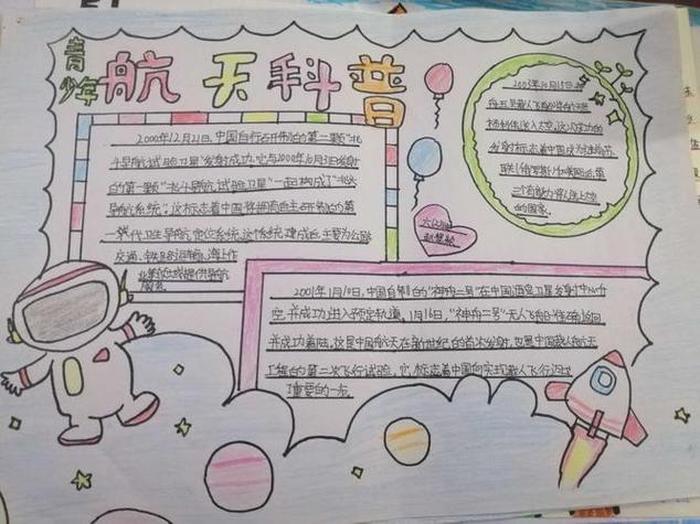 青少年
航天科普
2000年12月21日,中国自行研制的第二颗“北
斗导航试验卫星”发射成功,它与2000年10月31日发射
的第一颗“北斗导航试验卫星”一起构成了“北斗
导航系统”。这标志着中国将拥有自主研制的第
一代卫星导航定位系统,这个系统建成后,主要为公路
交通、铁路运输、海上作
业等领域提供导航
服务。
2003年10月15日
神舟五号载人飞船将航天员
杨利伟送入太空。这次成功的
发射标志着中国成为继前苏
联(俄罗斯)和美国后,第
三个有能力将人送上太空
的国家。
2001年1月10日,中国自制的“神舟二号”在中国酒泉卫星发射中心升
空,并成功进入预定轨道。1月16日,“神舟二号”无人飞船准确返回
并成功着陆,这是中国航天在新世纪的首次发射,也是中国载人航天
工程的第二次飞行试验,它标志着中国向实现载人飞行迈出
了重要的一步。